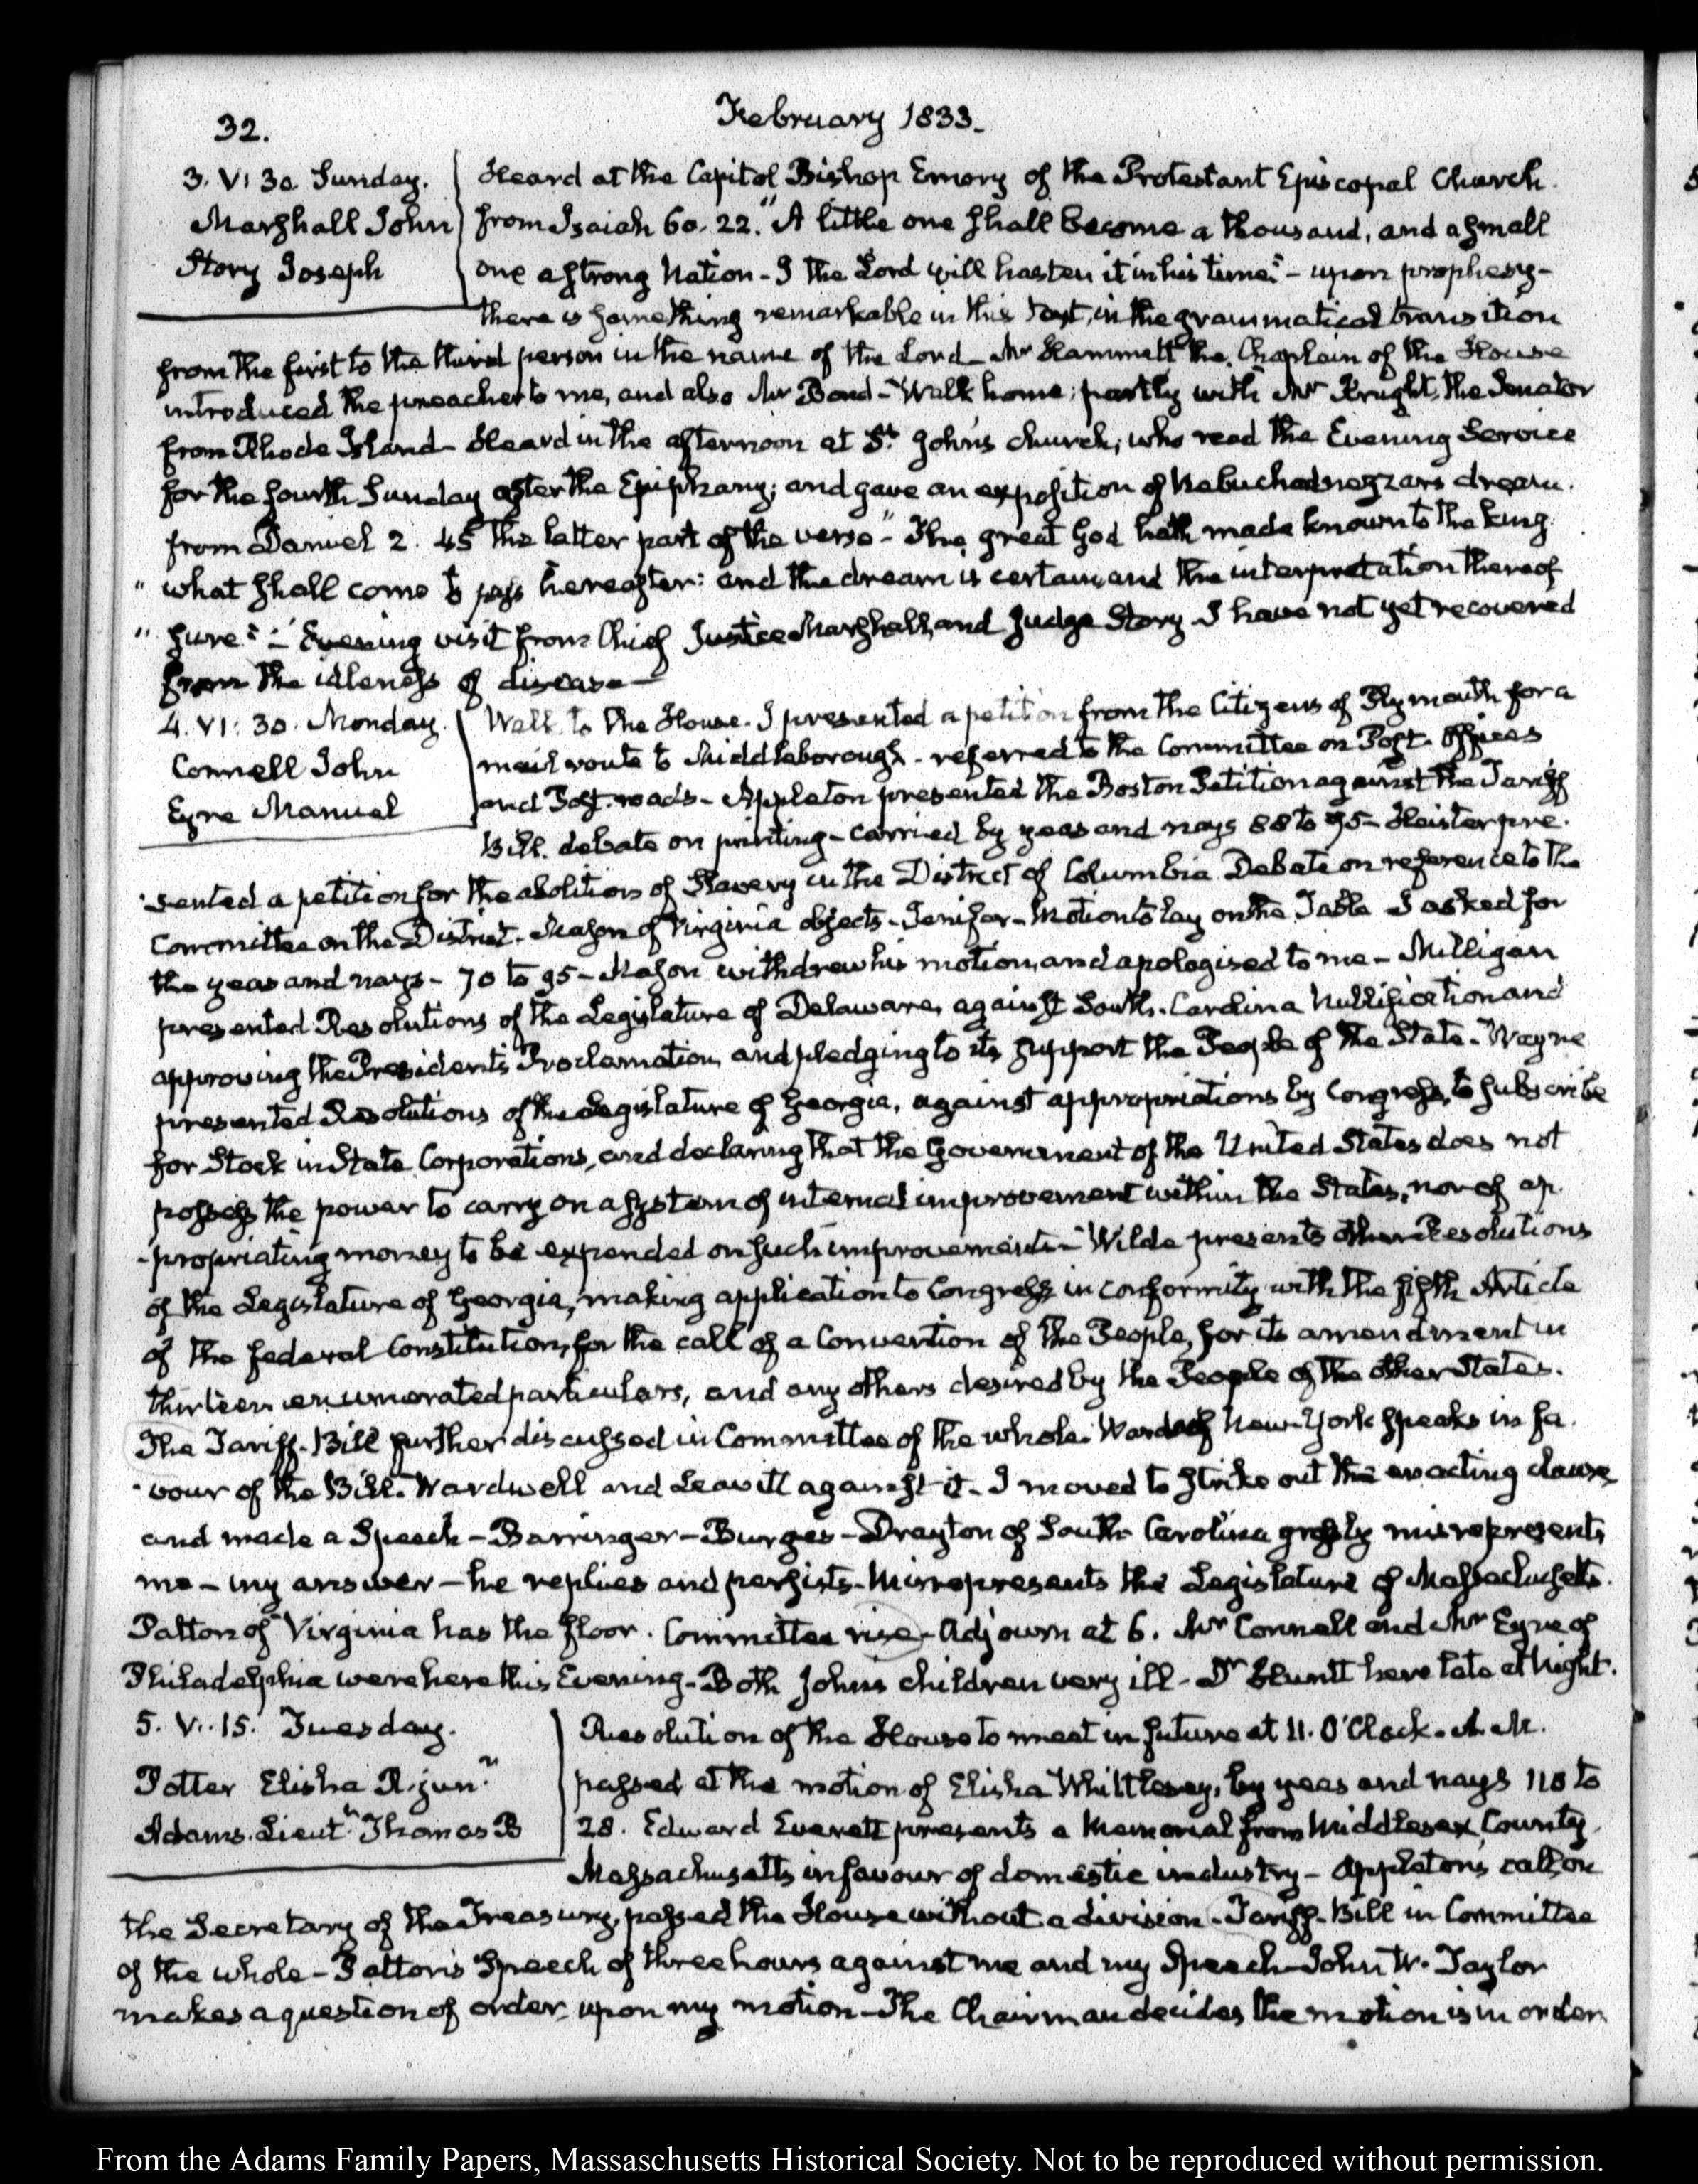 32.
February 1833.
3. V: 30 Sunday.
Marshall John
Story Joseph
Heard at the Capitol Bishop Emory of the Protestant Episcopal Church.
from Isaiah 60. 22. "A little one shall become a thousand, and a small
one a strong Nation - I the Lord will hasten it in his time" - upon prophesy -
there is something remarkable in this text, in the grammatical transition
from the first to the third person in the name of the Lord - Mr Hammett the Chaplain of the House
introduced the preacher to me, and also Mr Bond - Walk home; partly with Mr Knight, the Senator
from Rhode Island - Heard in the afternoon at St. John's church, who read the Evening Service
for the fourth Sunday after the Epiphany; and gave an exposition of Nebuchadnezzars dream.
from Daniel 2. 45 the latter part of the verse - "The great God hath made known to the king
" what shall come to pass hereafter: and the dream is certain, and the interpretation thereof
" sure" - Evening visit from Chief Justice Marshall, and Judge Story - I have not yet recovered
from the idleness of disease -
4. VI: 30. Monday.
Connell John
Eyre Manuel
Walk to the House. I presented a petition from the Citizens of Plymouth for a
mail route to Middleborough - referred to the Committee on Post-Offices
and Post-roads - Appleton presented the Boston Petition against the Tariff
Bill. debate on printing - carried by yeas and nays 88 to 75 - Heister pre-
-sented a petition for the abolition of Slavery in the District of Columbia Debate on reference to the
Committee on the District. Mason of Virginia objects - Jenifer - Motion to lay on the Table I asked for
the yeas and nays - 70 to 95 - Mason withdrew his motion, and apologised to me - Milligan
presented Resolutions of the Legislature of Delaware, against South-Carolina Nullification and
approving the President's Proclamation, and pledging to its support the People of the State - Wayne
presented Resolutions of the Legislature of Georgia, against appropriations by Congress, to subscribe
for Stock in State Corporations, and declaring that the Government of the United States does not
possess the power to carry on a system of internal improvement within the States, nor of ap-
-propriating money to be expended on such improvements - Wilde presents other Resolutions
of the Legislature of Georgia, making application to Congress in conformity with the fifth Article
of the federal Constitution, for the call of a Convention of the People, for its amendment in
thirteen enumerated particulars, and any others desired by the People of the other States.
The Tariff-Bill further discussed in Committee of the whole. Ward of New-York speaks in fa-
-vour of the Bill. Wardwell and Leavitt against it - I moved to strike out the enacting clause
and made a Speech - Barringer - Burges - Drayton of South Carolina grossly misrepresents
me - my answer - he replies and persists - Misrepresents the Legislature of Massachusetts.
Patton of Virginia has the floor. Committee rise - Adjourn at 6. Mr Connell and Mr Eyre of
Philadelphia were here this Evening - Both Johns children very ill - Dr Huntt here late at Night.
5. V: 15. Tuesday.
Potter Elisha R. junr
Adams. Lieutt Thomas B
Resolution of the House to meet in future at 11. O'Clock - A. M.
passed at the motion of Elisha Whittlesey, by yeas and nays 118 to
28. Edward Everett presents a Memorial from Middlesex County
Massachusetts in favour of domestic industry - Appleton's call on
the Secretary of the Treasury, passed the House without a division - Tariff-Bill in Committee
of the whole - Patton's Speech of three hours against me and my Speech - John W. Taylor
makes a question of order, upon my motion - The Chairman decides the motion is in order
From the Adams Family Papers, Massachusetts Historical Society. Not to be reproduced without permission.